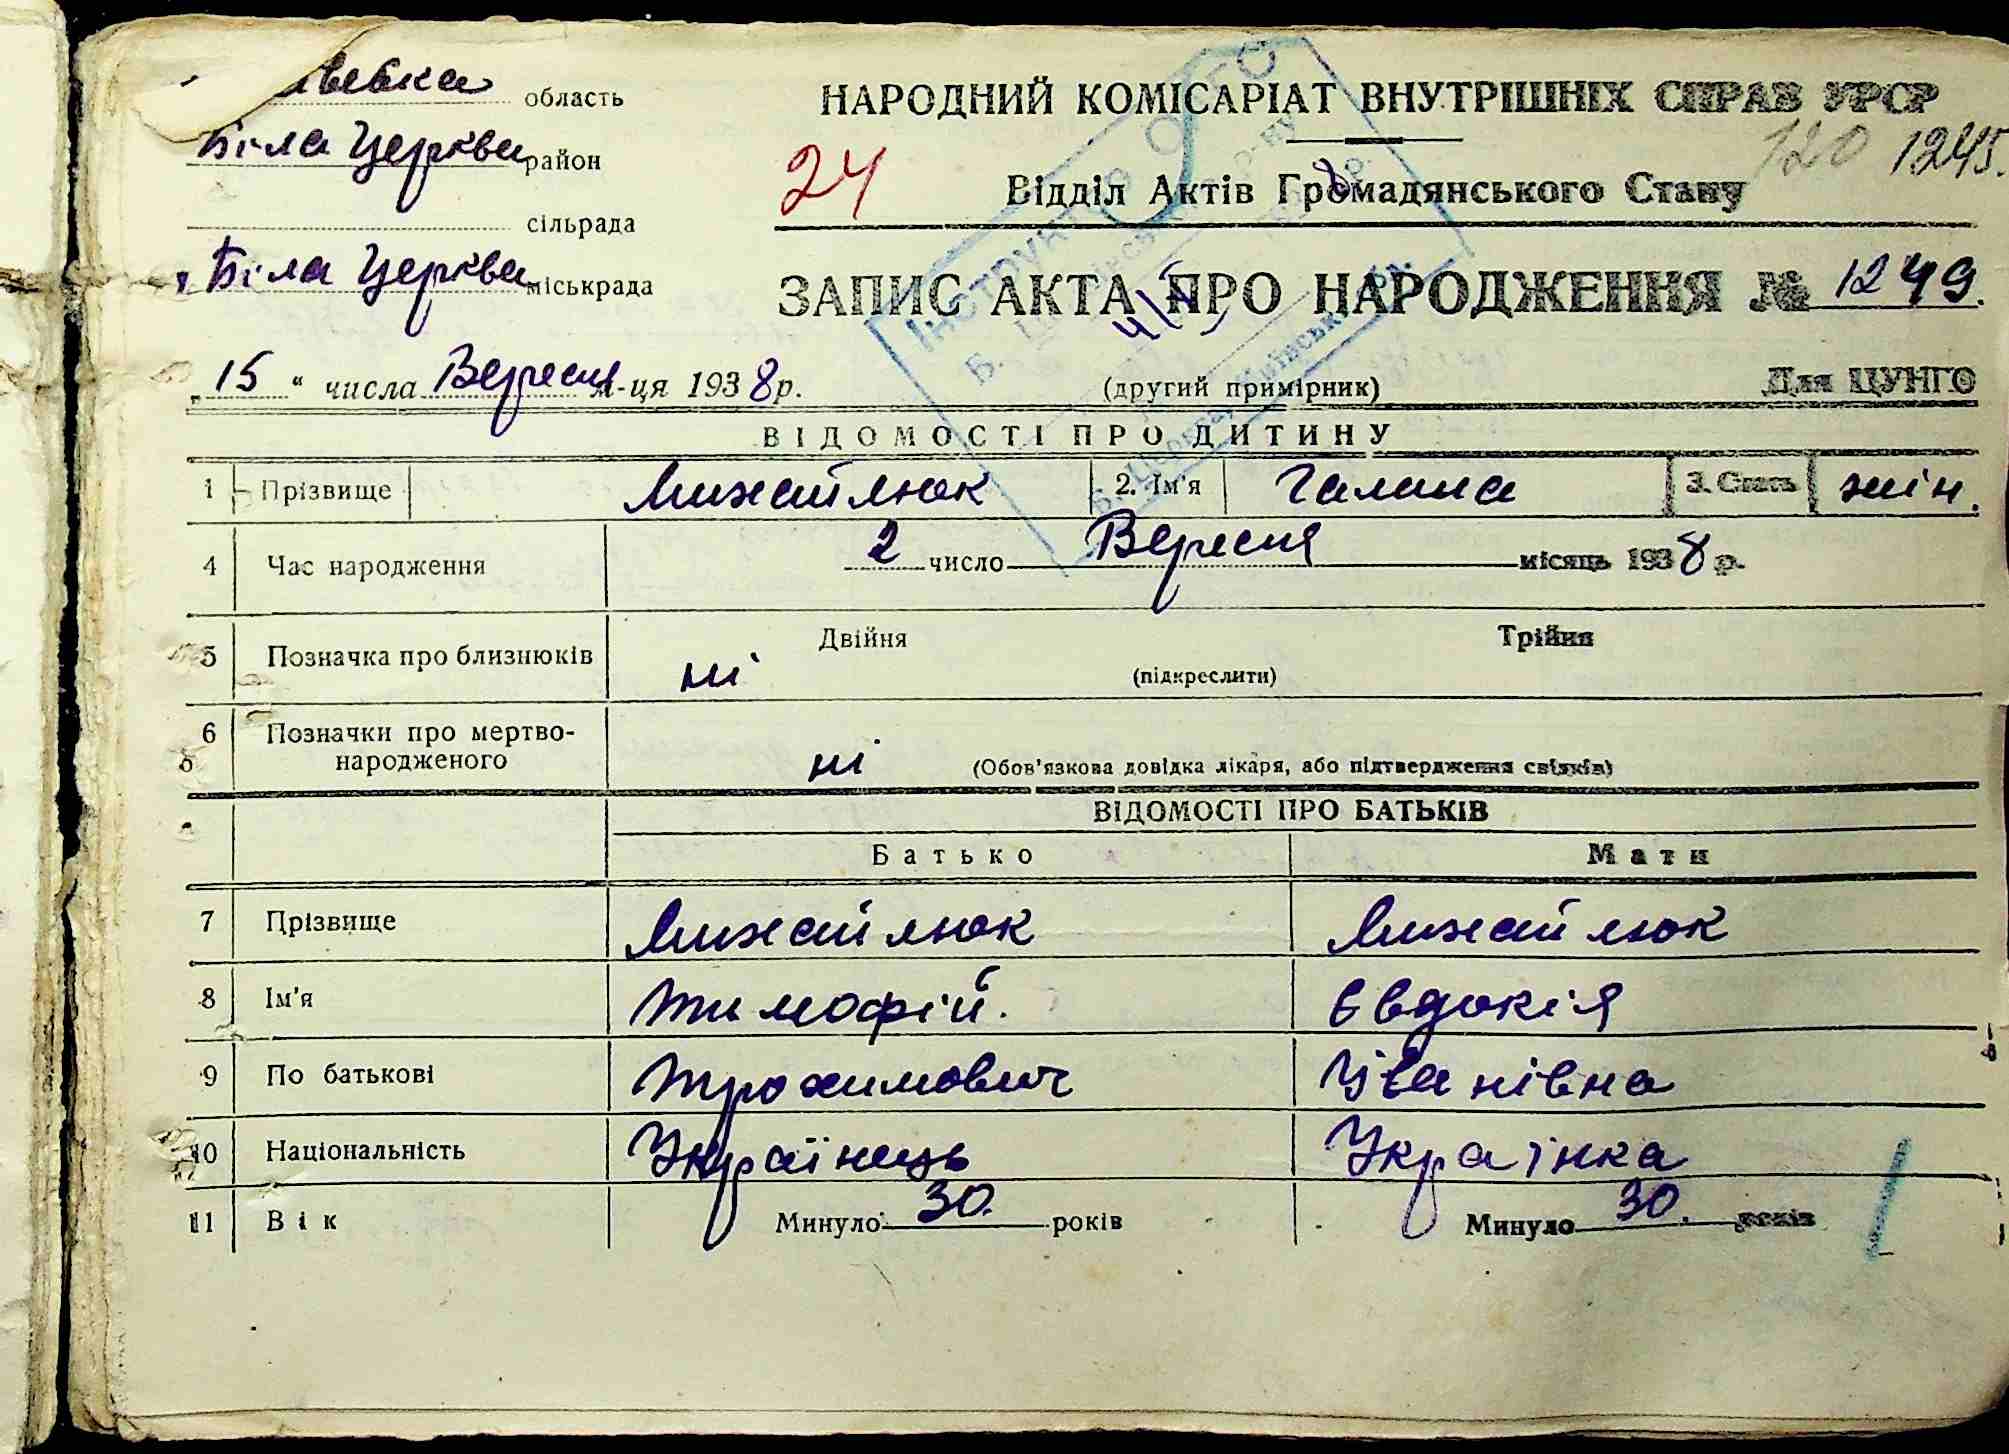 область
Біла Церква район
сільрада
Біла Церква міськрада
НАРОДНИЙ КОМІСАРІАТ ВНУТРІШНІХ СПРАВ УРСР
24
120 1245.
Відділ Актів Громадянського Стану
ЗАПИС АКТА ПРО НАРОДЖЕННЯ № 1249.
„15“ числа Вересня м-ця 1938 р.
(другий примірник)
Для ЦУНГО
ВІДОМОСТІ ПРО ДИТИНУ
1 Прізвище Михайлюк 2. Ім'я Галина 3. Стать жін.
4 Час народження 2 число Вересня місяць 1938 р.
5 Позначка про близнюків ні Двійня (підкреслити) Трійня
6 Позначки про мертво-
народженого ні (Обов'язкова довідка лікаря, або підтвердження свідків)
ВІДОМОСТІ ПРО БАТЬКІВ
Батько Мати
7 Прізвище Михайлюк Михайлюк
8 Ім'я Тимофій. Євдокія
9 По батькові Трохимович Іванівна
10 Національність Українець Українка
11 Вік Минуло 30. років Минуло 30. років